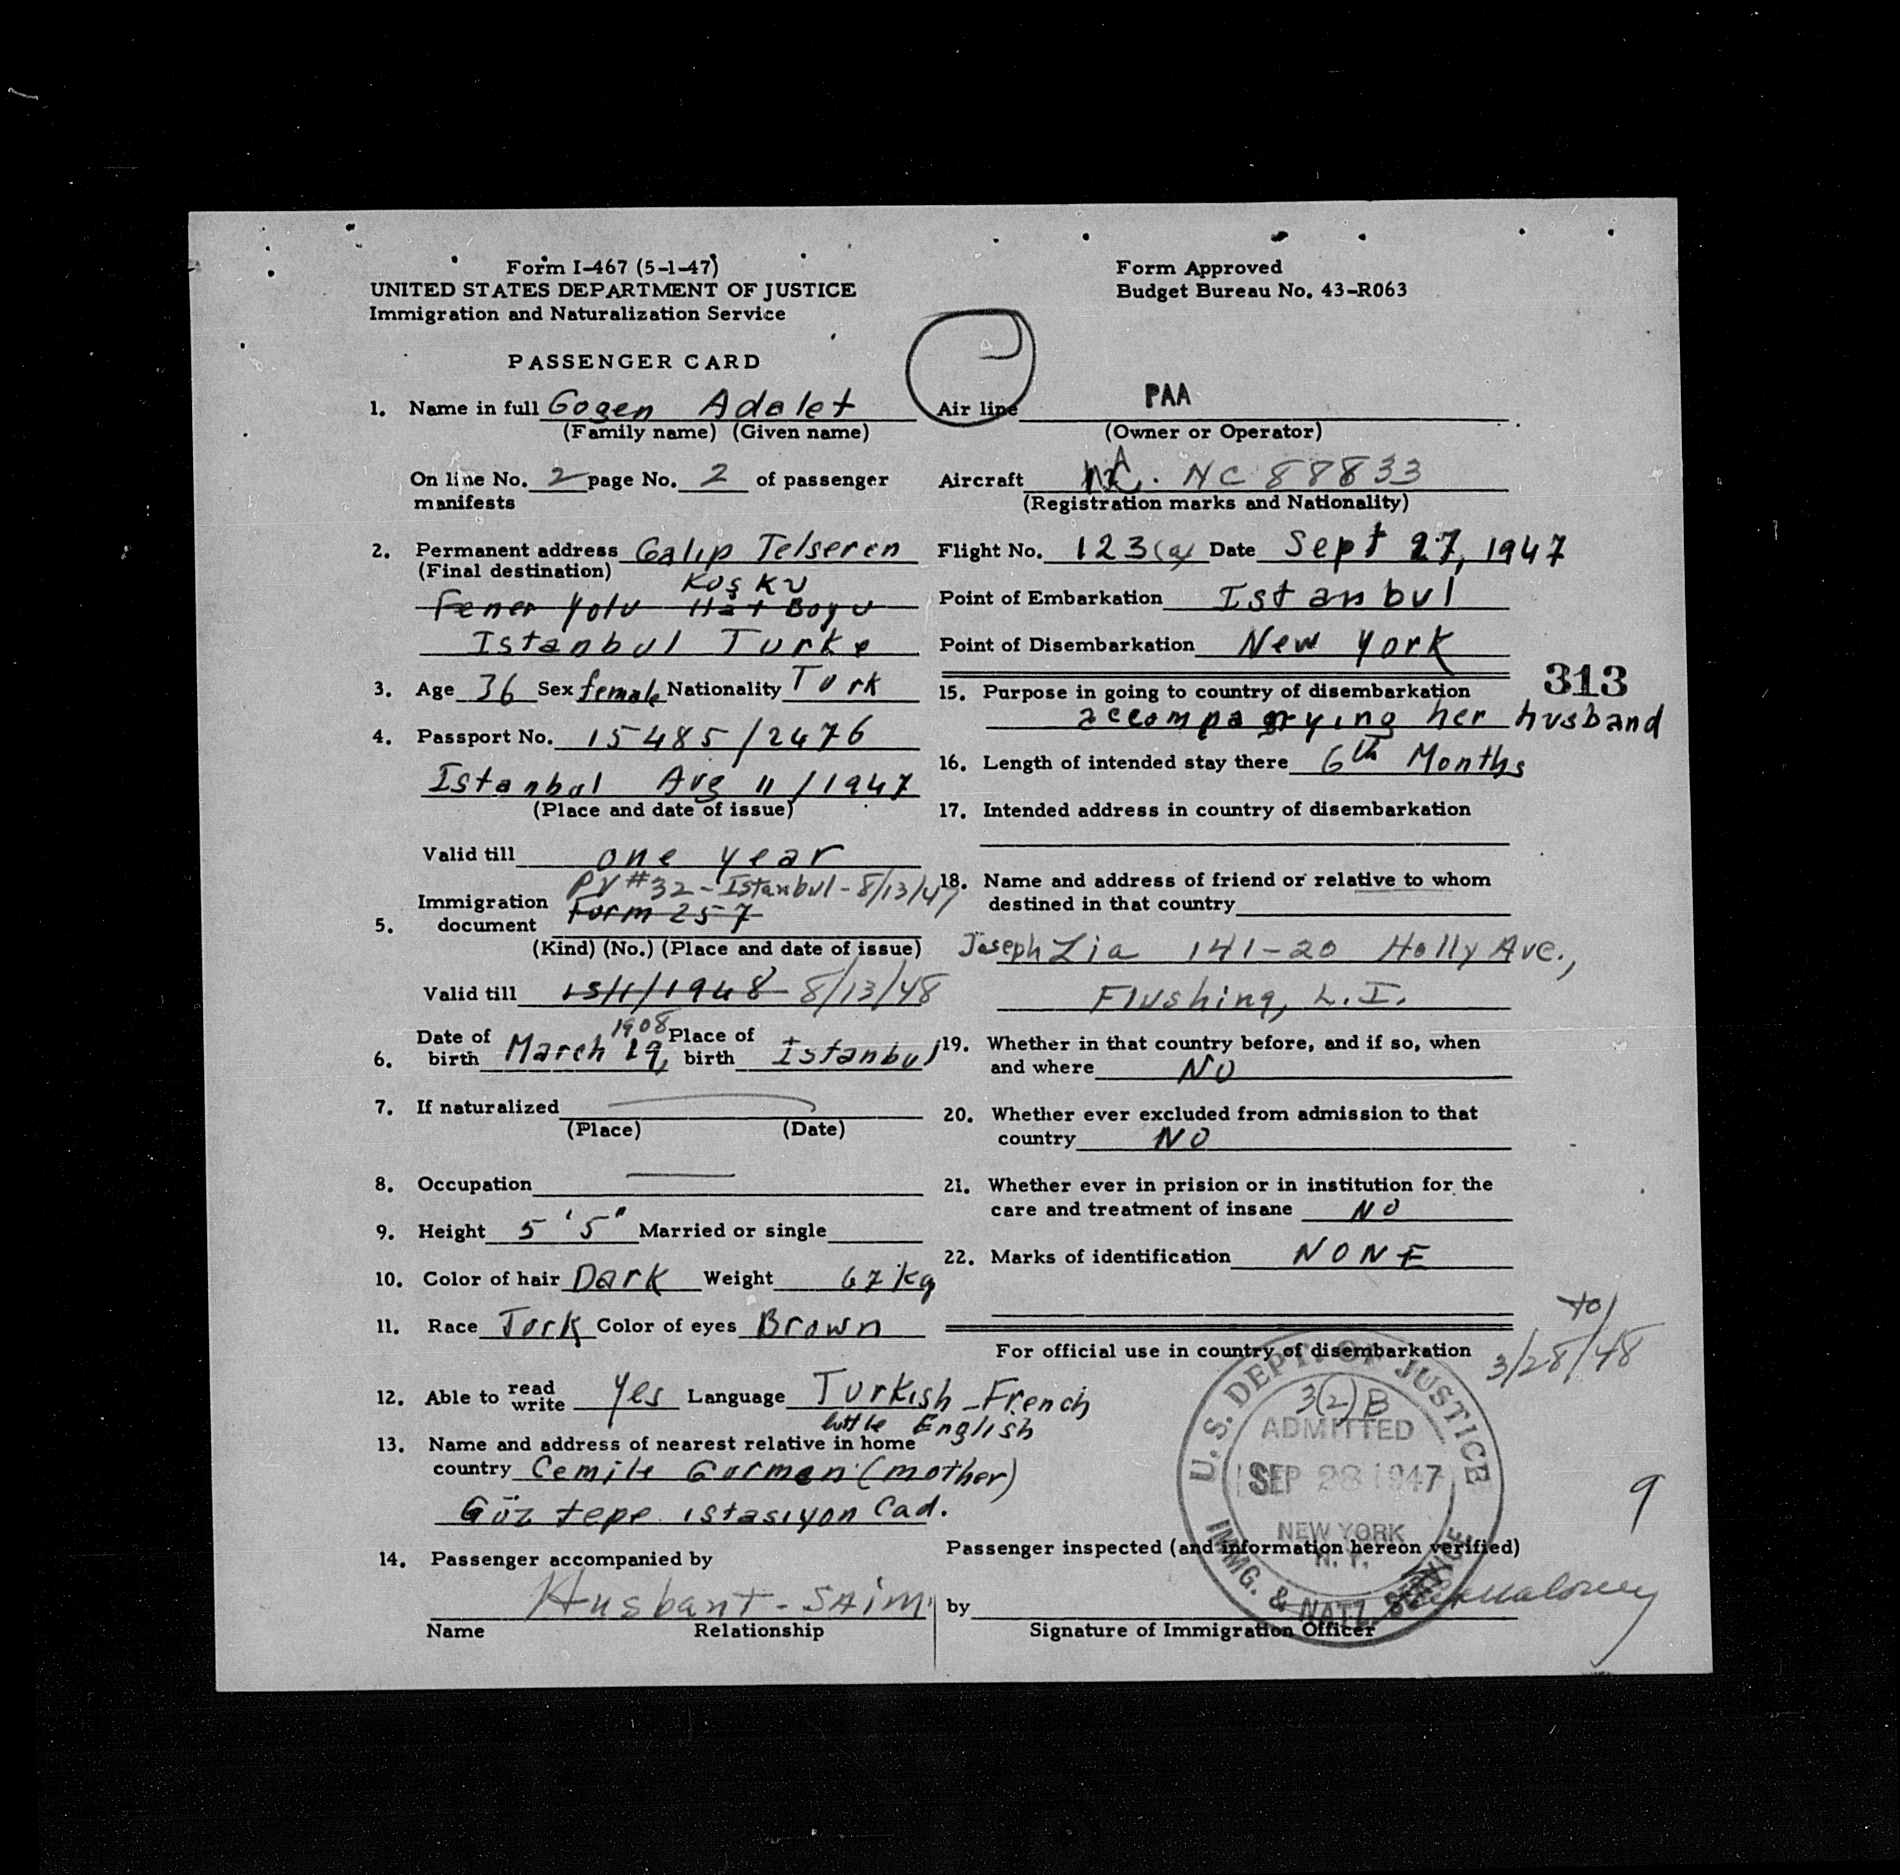 Form I-467 (5-1-47)
UNITED STATES DEPARTMENT OF JUSTICE
Immigration and Naturalization Service
Form Approved
Budget Bureau No. 43-R063
PASSENGER CARD
1. Name in full Gogen Adalet
(Family name) (Given name)
On line No. 2 page No. 2 of passenger
manifests
2. Permanent address Galip Telseren
(Final destination) Koşku
Fener Yolu Hat Boyu
Istanbul Turke
3. Age 36 Sex female Nationality Turk
4. Passport No. 15485/2476
Istanbul Aug 11/1947
(Place and date of issue)
Valid till one year
PV #32-Istanbul-8/13/47
5. Immigration document Form 257
(Kind) (No.) (Place and date of issue)
Valid till 8/13/48
1908
6. Date of birth March 19, Place of birth Istanbul
7. If naturalized
(Place) (Date)
8. Occupation
9. Height 5'5" Married or single
10. Color of hair Dark Weight 67 kg
11. Race Turk Color of eyes Brown
12. Able to read write Yes Language Turkish-French
little English
13. Name and address of nearest relative in home
country Cemile Gurmen (mother)
Göz tepe istasıyon Cad.
14. Passenger accompanied by
Husbant-SAIM
Name Relationship
Air line PAA
(Owner or Operator)
Aircraft NC 88833
(Registration marks and Nationality)
Flight No. 123(a) Date Sept 27, 1947
Point of Embarkation Istanbul
Point of Disembarkation New York
313
15. Purpose in going to country of disembarkation
accompagnying her husband
16. Length of intended stay there 6th Months
17. Intended address in country of disembarkation
18. Name and address of friend or relative to whom
destined in that country
Joseph Lia 141-20 Holly Ave.,
Flushing, L.I.
19. Whether in that country before, and if so, when
and where NO
20. Whether ever excluded from admission to that
country NO
21. Whether ever in prision or in institution for the
care and treatment of insane NO
22. Marks of identification NONE
For official use in country of disembarkation
to
3/28/48
U.S. DEPT. OF JUSTICE
3(2)B
ADMITTED
SEP 28 1947
NEW YORK
N. Y.
IMMG. & NATZ. SERVICE
9
Passenger inspected (and information hereon verified)
by
Signature of Immigration Officer